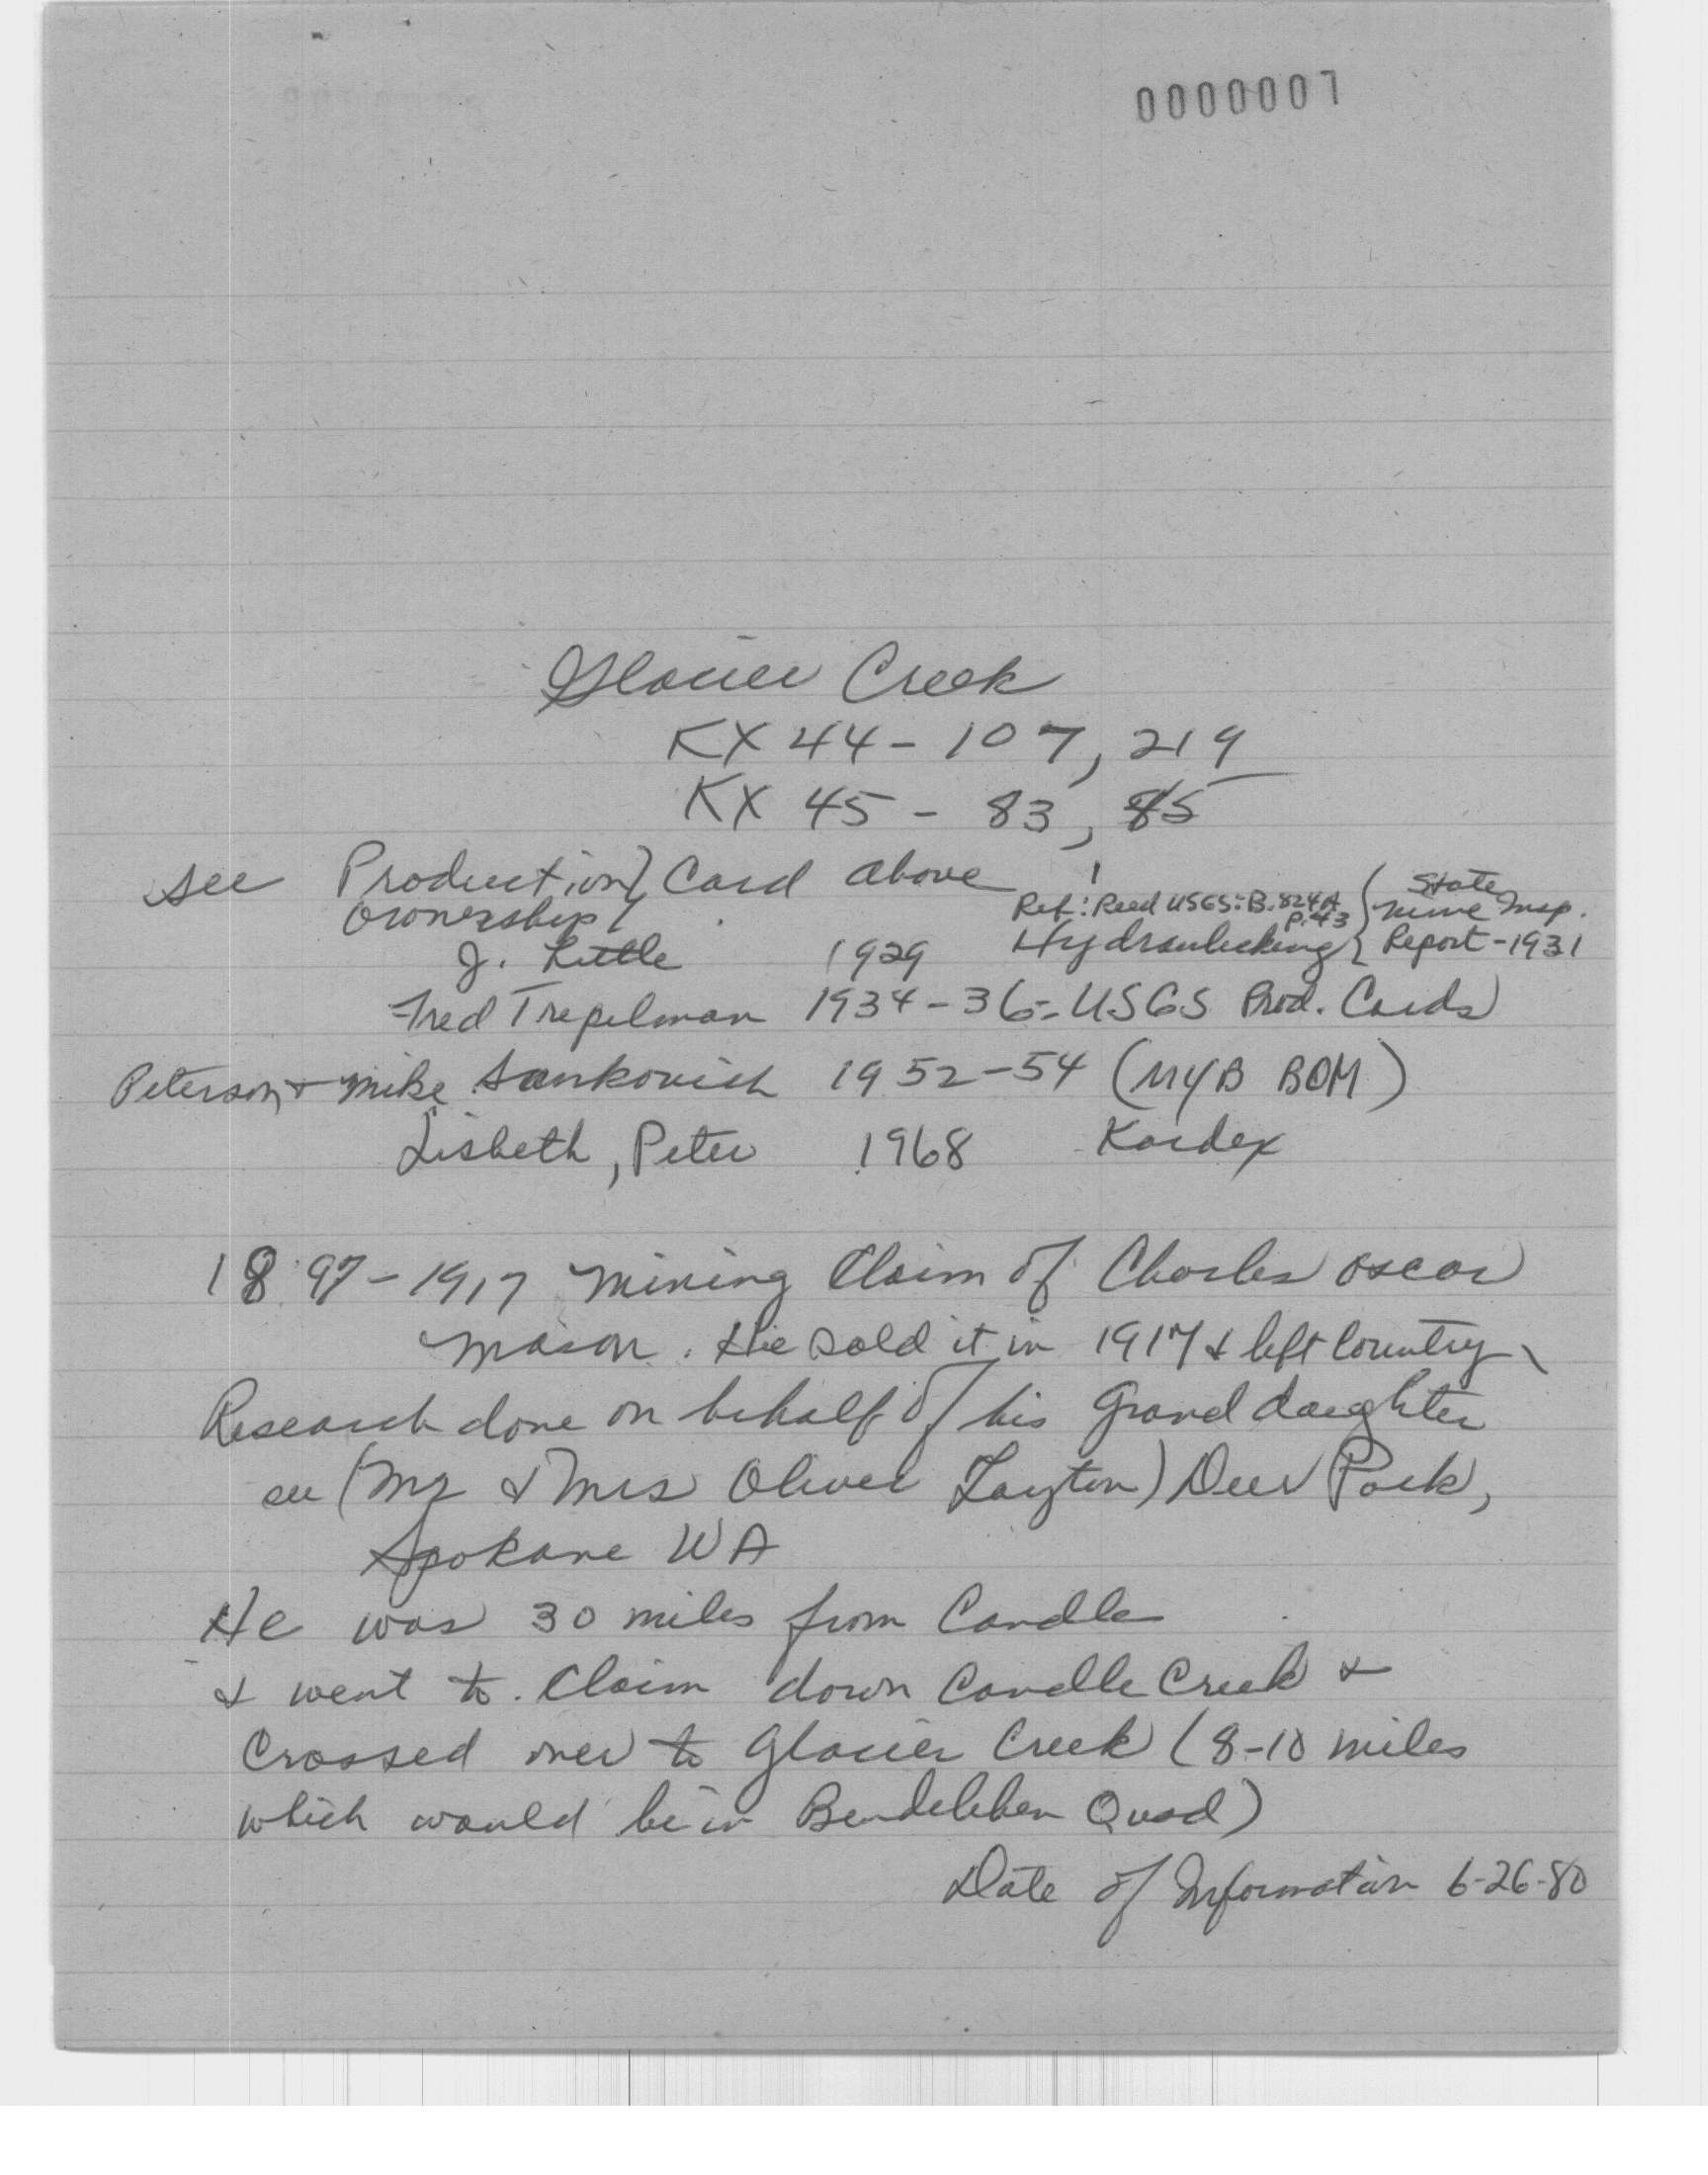 0000007
Glacier Creek
KX 44 - 107, 219
KX 45 - 83, 85
see Production} Card above
Ownership
Ref: Reed USGS: B. 824A p. 43 { State Mine Insp.
J. Little 1929 Hydraulicking { Report - 1931
Fred Trepelman 1934 - 36 - USGS Prod. Cards
Peterson + Mike Sankovich 1952 - 54 (MYB BOM)
Lisbeth, Peter 1968 Kardex
1897 - 1917 Mining Claim of Charles Oscar
Mason. He sold it in 1917 & left Country
Research done on behalf of his Grand daughter
see (Mr & Mrs Oliver Layton) Deer Park,
Spokane WA
He was 30 miles from Candle
& went to Claim down Candle Creek &
Crossed over to Glacier Creek (8-10 miles
which would be in Bendeleben Quad)
Date of Information 6-26-80